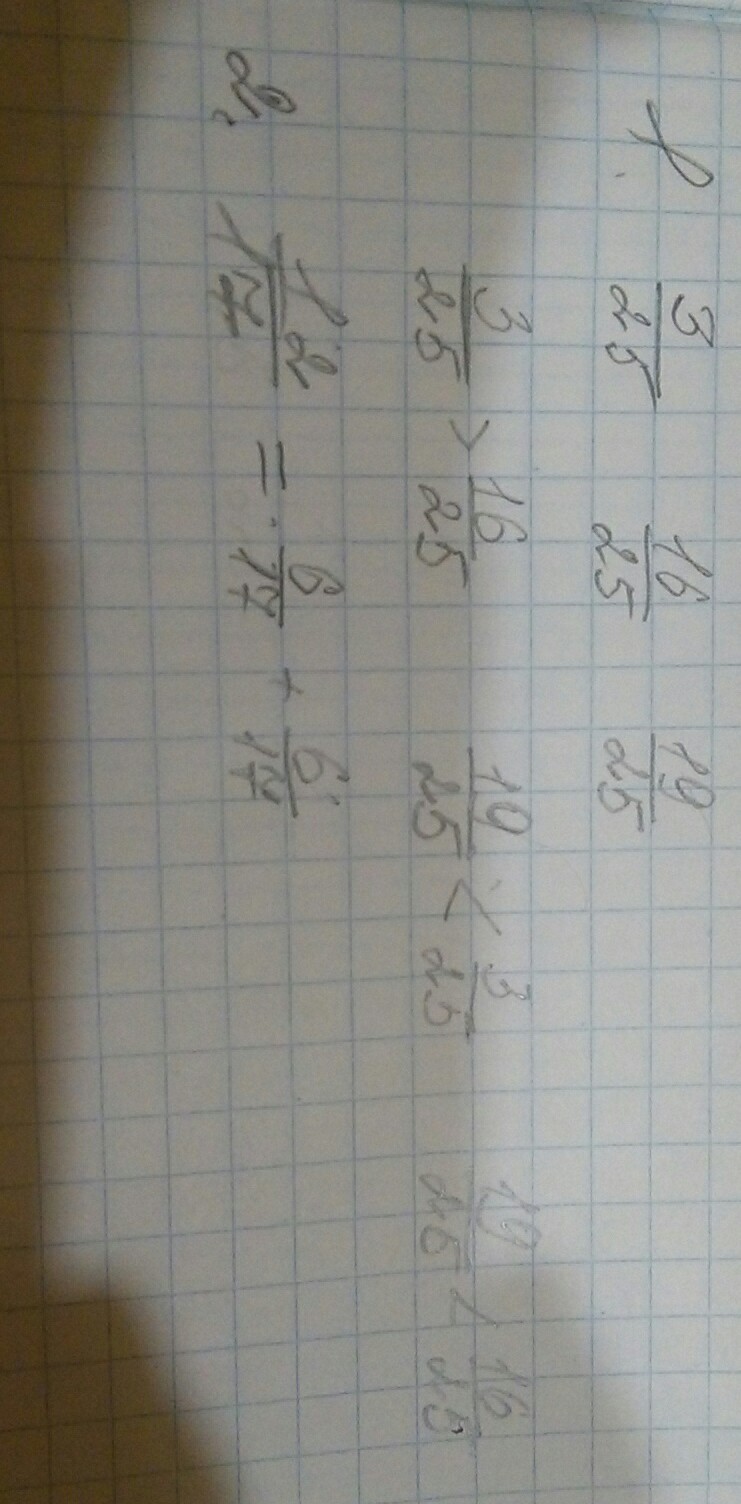 1. 3/25 16/25 19/25
3/25 > 16/25 19/25 < 3/25 19/25 < 16/25
2. 12/17 = 6/17 + 6/17